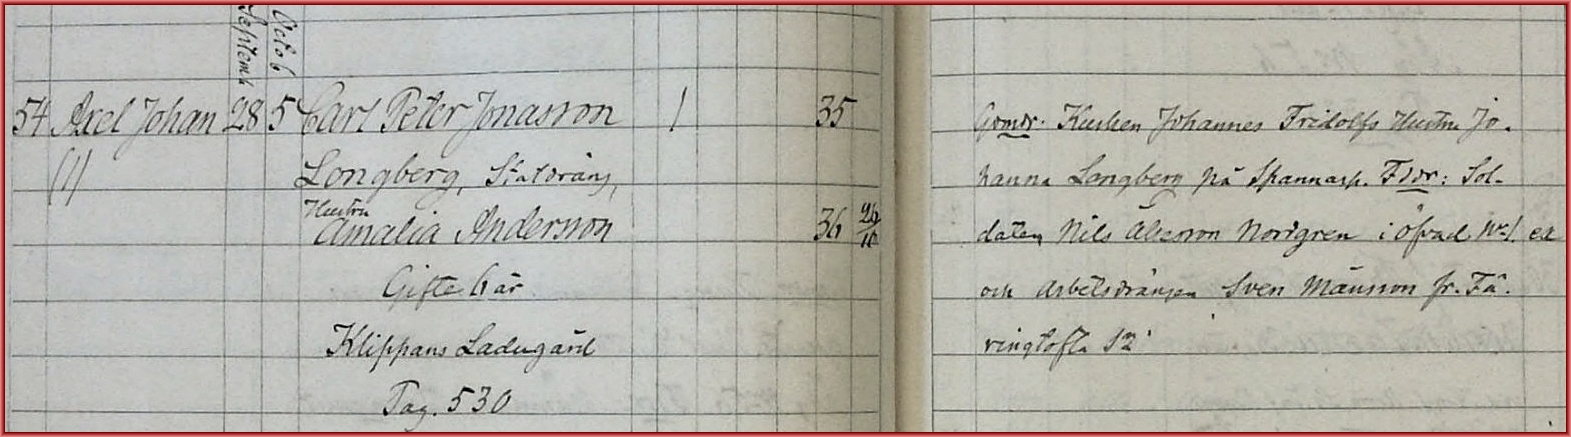 Septemb Octob
54 Axel Johan 28 5 Carl Peter Jonasson 1 35
(1) Longberg, Statdräng,
Hustru
Amalia Andersson 36 26/10
Gifte 6 år
Klippans Ladugård
Pag. 530
Gomor. Kusken Johannes Fridolfs Hustru Jo.
hanna Longberg på Spannarp. Fddr: Sol-
daten Nils Åkesson Nordgren i Öfvad No 1
och Arbetsdrängen Sven Månsson fr. Få.
ringtofta 12